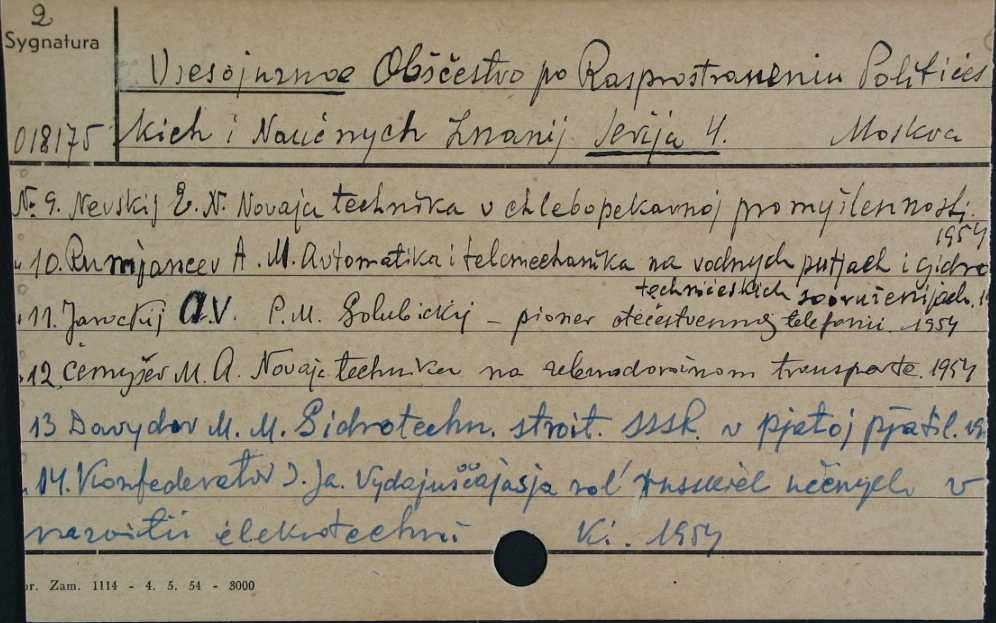 2
Sygnatura
Vsesojuznoe Obščestvo po Rasprostraneniu Političes
018175 kich i Naučnych Znanij Serija 4. Moskva
№ 9. Nevskij E. N. Novaja technika v chlebopekavnoj promyšlennosti.
1954
" 10. Rumjancev A. M. Avtomatika i telemechanika na vodnych putjach i gidro
techničeskich sooruženijach.
" 11. Jarockij A.V. P.M. Golubickij – pioner otečestvennoj telefonii. 1954
" 12. Černyšev M. A. Novaja technika na železnodorožnom transporte. 1954
13 Davydov M. M. Gidrotechn. stroit. SSSR. v pjatoj pjatil.
" 14. Konfederatov I. Ja. Vydajuščajasja rol' russkich učenych v
razvitii elekrotechni ki. 1954
Zam. 1114 - 4. 5. 54 - 3000